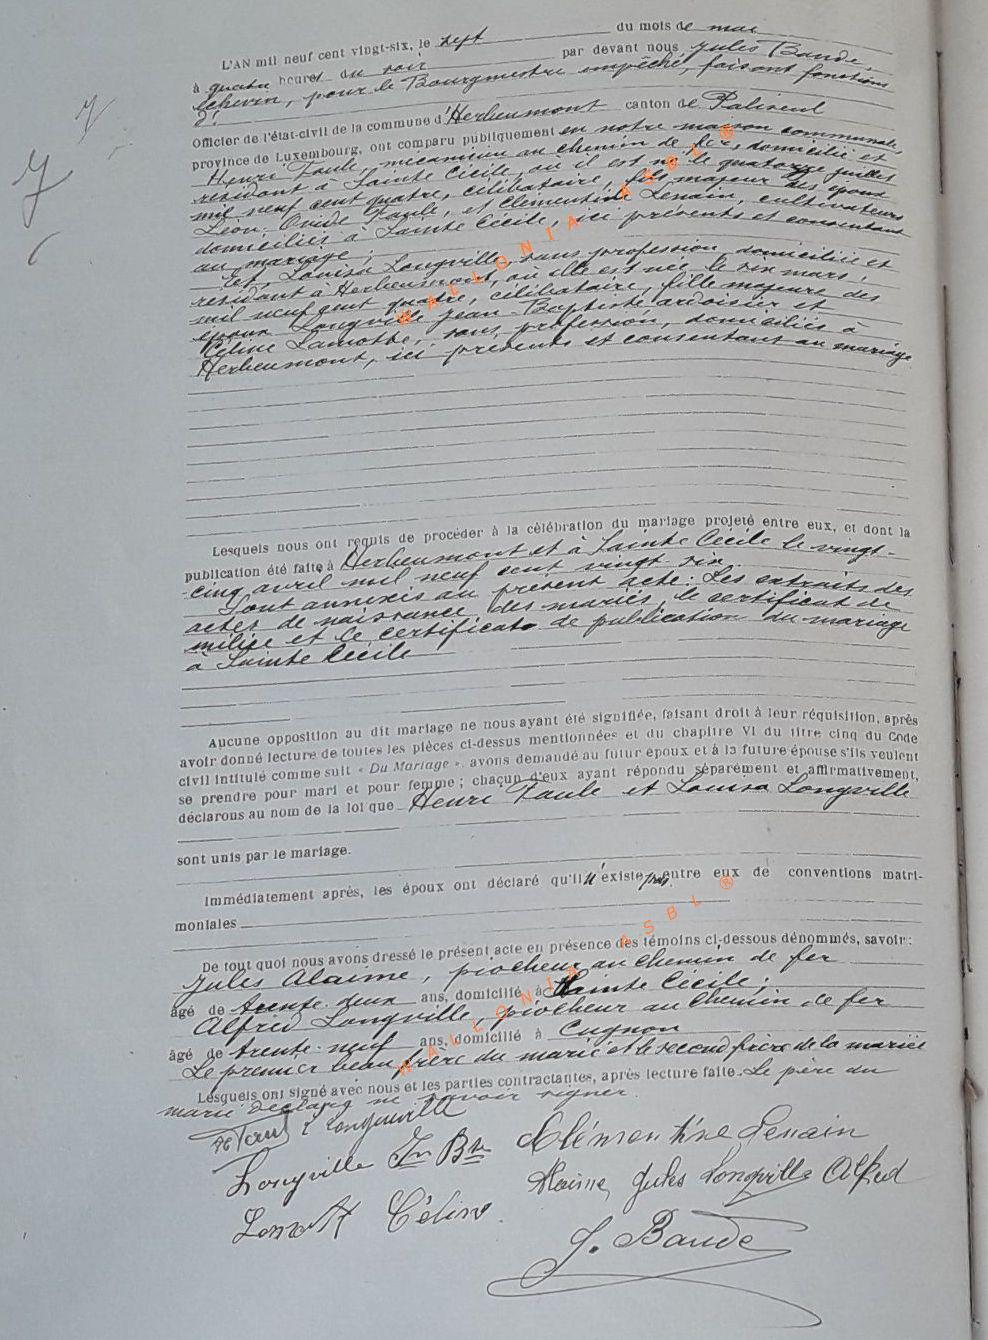 L'AN mil neuf cent vingt-six, le sept du mois de mai
à quatre heures du soir par devant nous Jules Baude,
échevin, pour le Bourgmestre empêché, faisant fonctions
d'
Officier de l'état-civil de la commune d'Herbeumont canton de Paliseul
province de Luxembourg, ont comparu publiquement en notre maison communale,
Henri Taule, mécanicien au chemin de fer, domicilié et
résidant à Sainte Cécile, où il est né le quatorze juillet
mil neuf cent quatre, célibataire, fils majeur des époux
Léon Ovide Taule, et Clémentine Lenain, cultivateurs
domiciliés à Sainte Cécile, ici présents et consentant
au mariage;
Et, Louisa Longville, sans profession, domiciliée et
résidant à Herbeumont, où elle est née le six mars,
mil neuf cent quatre, célibataire, fille majeure des
époux Longville Jean-Baptiste ardoisier et
Céline Lamotte, sans profession, domiciliés à
Herbeumont, ici présents et consentant au mariage
Lesquels nous ont requis de procéder à la célébration du mariage projeté entre eux, et dont la
publication été faite à Herbeumont et à Sainte Cécile le vingt-
cinq avril mil neuf cent vingt six
Sont annexés au présent acte: Les extraits des
actes de naissance des mariés, le certificat de
milice et le certificat de publication du mariage
à Sainte Cécile
Aucune opposition au dit mariage ne nous ayant été signifiée, faisant droit à leur réquisition, après
avoir donné lecture de toutes les pièces ci-dessus mentionnées et du chapitre VI du titre cinq du Code
civil intitulé comme suit « Du Mariage », avons demandé au futur époux et à la future épouse s'ils veulent
se prendre pour mari et pour femme; chacun d'eux ayant répondu séparément et affirmativement,
déclarons au nom de la loi que Henri Taule et Louisa Longville
sont unis par le mariage.
Immédiatement après, les époux ont déclaré qu'il n'existe pas entre eux de conventions matri-
moniales
De tout quoi nous avons dressé le présent acte en présence des témoins ci-dessous dénommés, savoir:
Jules Alaime, piocheur au chemin de fer
âgé de trente-deux ans, domicilié à Sainte Cécile;
Alfred Longville, piocheur au chemin de fer
âgé de trente-neuf ans, domicilié à Cugnon
Le premier beau frère du marié et le second frère de la mariée
Lesquels ont signé avec nous et les parties contractantes, après lecture faite. Le père du
marié déclare ne savoir signer.
L Longville
Longville Jn Bte Clémentine Lenain
Alaime Jules Longville Alfred
Lamotte Céline
J. Baude
WALLONIA ASBL ®
WALLONIA ASBL ®